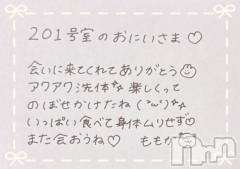 201号室のおにいさま♡
会いに来てくれてありがとう
アワアワ洗体楽しくって
のぼせかけたね
いっぱい食べて身体ムリせず
また会おうね ももか